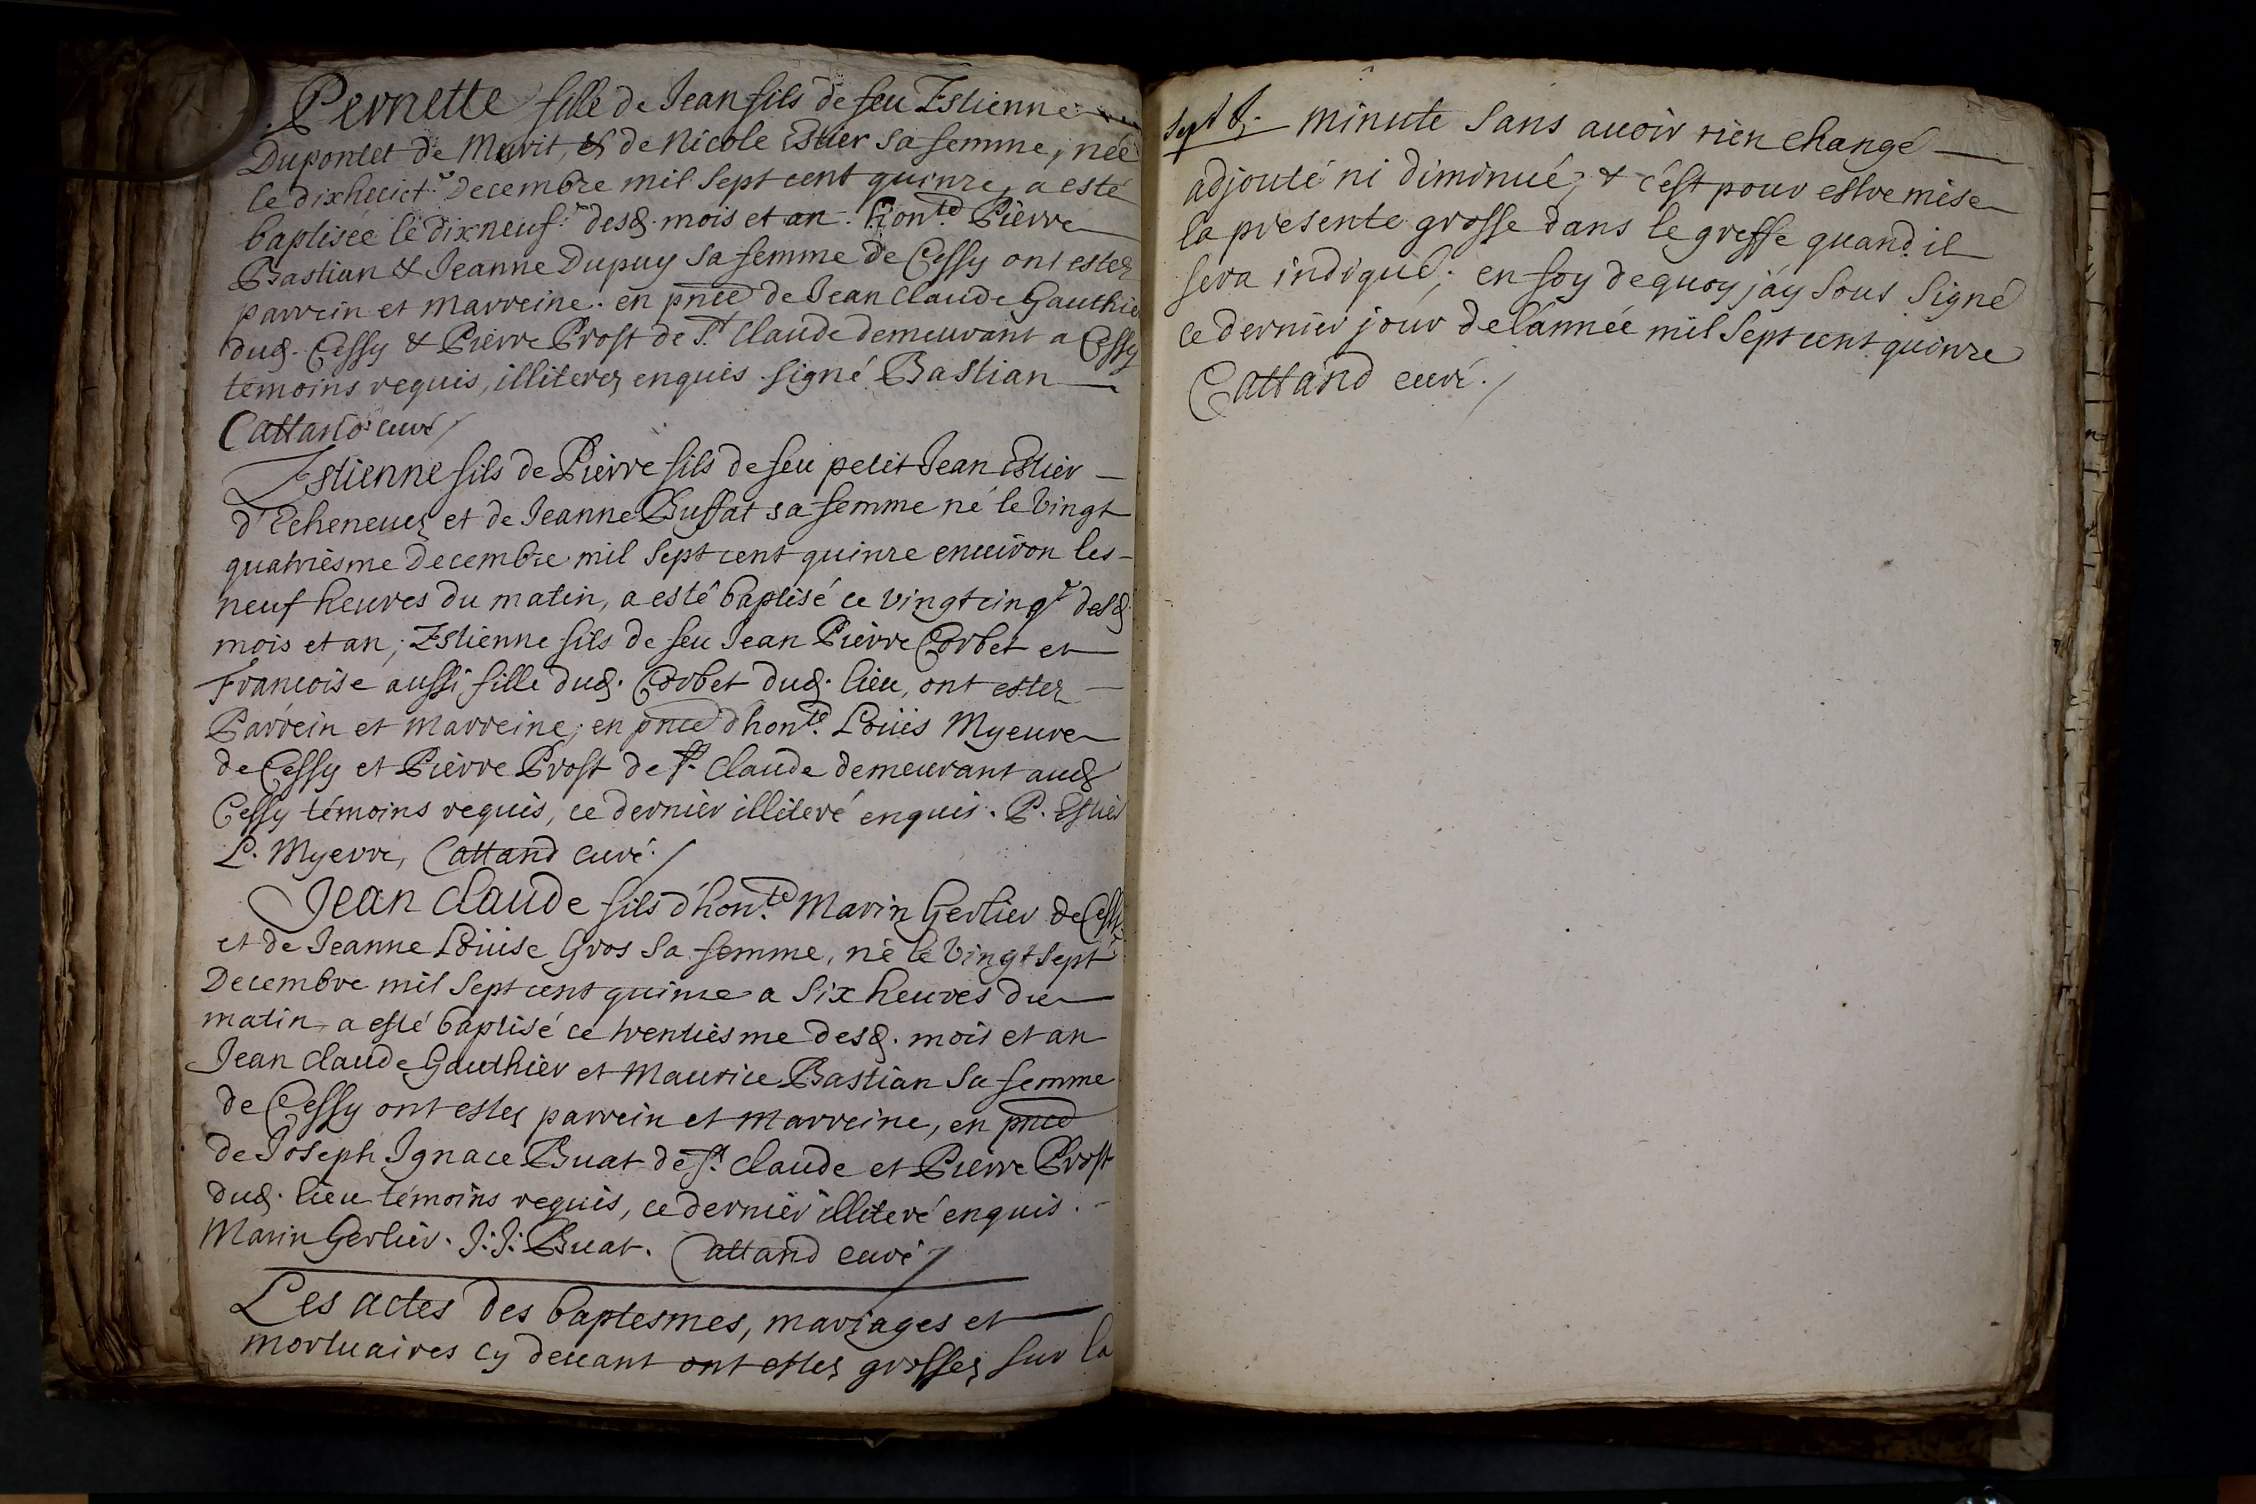 Pernette fille de Jean fils de feu Estienne
Dupontet de Murit, & de Nicole Estier sa femme, née
le dixhuict.e Decembre mil sept cent quinze, a esté
baptisée le dixneuf.e desd. mois et an. hon.te Pierre
Bastian & Jeanne Dupuy sa femme de Cessy ont estez
parrein et marreine. en pnce de Jean Claude Gauthier
dud. Cessy & Pierre Prost de S.t Claude demeurant a Cessy
témoins requis, illiterez enquis. signé Bastian
Cattand curé
Estienne fils de Pierre fils de feu petit Jean Estier
d'Echenevez et de Jeanne Buffat sa femme né le vingt
quatriesme Decembre mil sept cent quinze enuiron les
neuf heures du matin, a esté baptisé ce vingtcinq.e desd.
mois et an; Estienne fils de feu Jean Pierre Corbet et
Francoise aussi fille dud. Corbet dud. lieu, ont estez
Parrein et marreine; en pnce d'hon.te Loüis Myeure
de Cessy et Pierre Prost de S.t Claude demeurant aud
Cessy témoins requis, ce dernier illiteré enquis. P. Estier
L. Myevre, Cattand curé.
Jean Claude fils d'hon.te Marin Gerlier de Cessy
et de Jeanne Loüise Gros sa femme, né le vingt sept
Decembre mil sept cent quinze a six heures du
matin a esté baptisé ce trentiesme desd. mois et an
Jean Claude Gauthier et Maurice Bastian sa femme
de Cessy ont estez parrein et marreine, en pnce
de Joseph Ignace Buat de S.t Claude et Pierre Prost
dud. lieu témoins requis, ce dernier illiteré enquis.
Marin Gerlier. J: J: Buat. Cattand curé
Les actes des baptesmes, mariages et
mortuaires cy deuant ont estez grossez sur la
minute sans auoir rien changé
adjouté ni diminué; & c'est pour estre mise
la presente grosse dans le greffe quand il
sera indiqué; en foy dequoy j'ay sous signé
ce dernier jour de l'année mil sept cent quinze
Cattand curé.